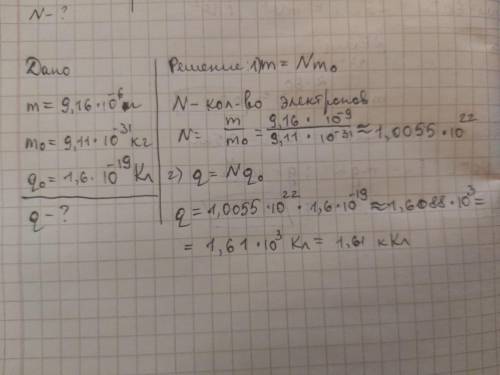 N - ?
Дано
m = 9,16·10⁻⁶ г
m₀ = 9,11·10⁻³¹ кг
q₀ = 1,6·10⁻¹⁹ Кл
q - ?
Решение: 1) m = Nm₀
N - кол-во электронов
N = m/m₀ = 9,16·10⁻⁹/9,11·10⁻³¹ ≈ 1,0055·10²²
2) q = Nq₀
q = 1,0055·10²²·1,6·10⁻¹⁹ ≈ 1,6088·10³ =
= 1,61·10³ Кл = 1,61 кКл